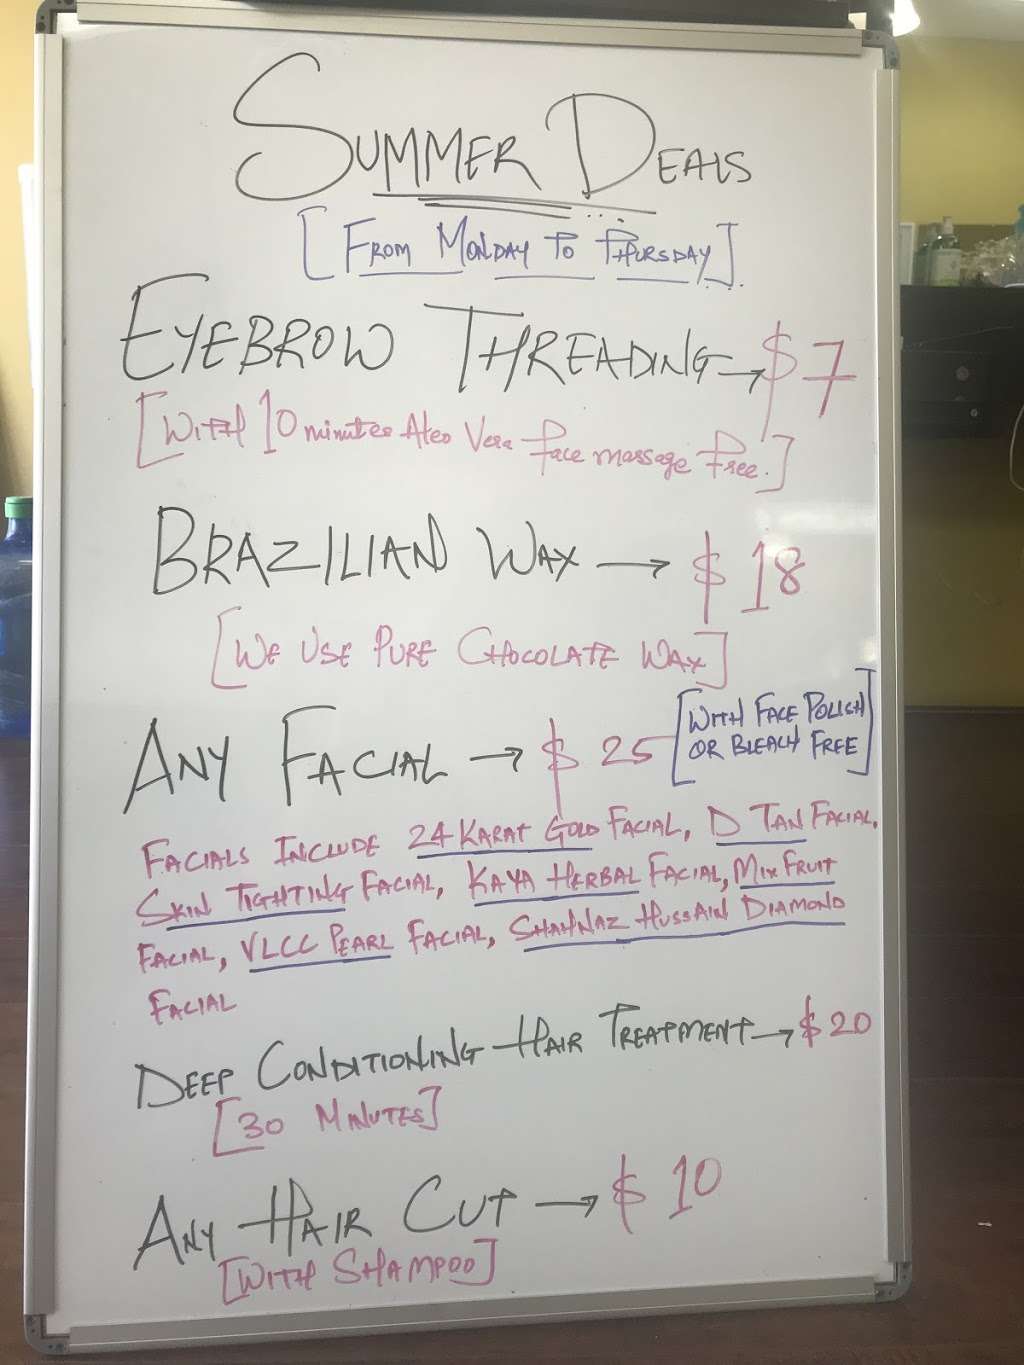 SUMMER DEALS
[FROM MONDAY TO THURSDAY]
EYEBROW THREADING → $7
[WITH 10 minutes Aleo Vera face massage free.]
BRAZILIAN WAX → $ 18
[WE USE PURE CHOCOLATE WAX]
ANY FACIAL → $ 25 [WITH FACE POLISH
OR BLEACH FREE]
FACIALS INCLUDE 24 KARAT GOLD FACIAL, D TAN FACIAL,
SKIN TIGHTING FACIAL, KAYA HERBAL FACIAL, MIX FRUIT
FACIAL, VLCC PEARL FACIAL, SHAHNAZ HUSSAIN DIAMOND
FACIAL
DEEP CONDITIONING HAIR TREATMENT → $20
[30 MINUTES]
ANY HAIR CUT → $ 10
[WITH SHAMPOO]